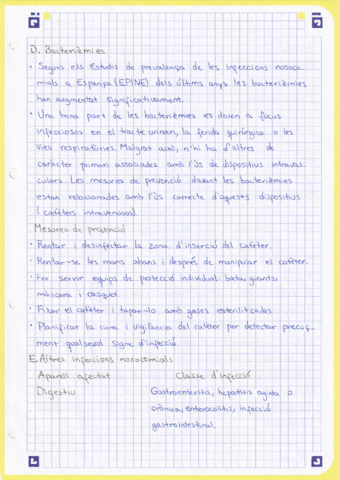 D. Bacterièmies
• Segons els Estudis de prevalença de les infeccions nosoco-
mials a Espanya (EPINE) dels últims anys les bacterièmies
han augmentat significativament.
• Una bona part de les bacterièmies es deuen a focus
infecciosos en el tracte urinari, la ferida quirúrgica o les
vies respiratòries. Malgrat això, n'hi ha d'altres de
caràcter primari associades amb l'ús de dispositius intravas-
culars. Les mesures de prevenció davant les bacterièmies
estan relacionades amb l'ús correcte d'aquests dispositius
(catèters intravenosos).
Mesures de prevenció
• Rentar i desinfectar la zona d'inserció del catèter.
• Rentar-se les mans abans i després de manipular el catèter.
• Fer servir equips de protecció individual: bata, guants,
màscara i casquet.
• Fixar el catèter i tapar-lo amb gases esterilitzades.
• Planificar la cura i vigilància del catèter per detectar precoç-
ment qualsevol signe d'infecció.
E. Altres infeccions nosocomials
Aparell afectat Classe d'infecció
Digestiu Gastroenteritis, hepatitis aguda o
crònica, enterocolitis, infecció
gastrointestinal.